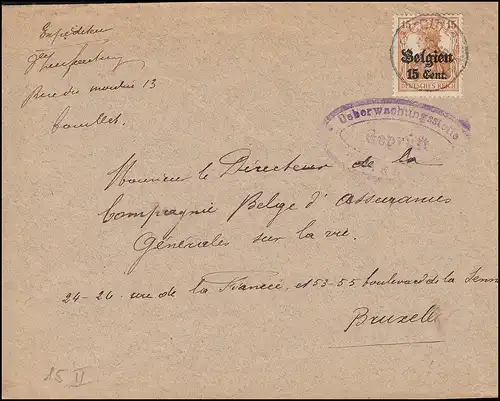 Expéditeur
Rue du moulin 13
Couillet.
15
Belgien
15 Cent.
DEUTSCHES REICH
Ueberwachungsstelle
Geprüft
Monsieur le Directeur de la
Compagnie Belge d'Assurances
Générales sur la vie.
24-26 rue de la Fiancée, et 53-55 boulevard de la Senne
Bruxelles
15 II